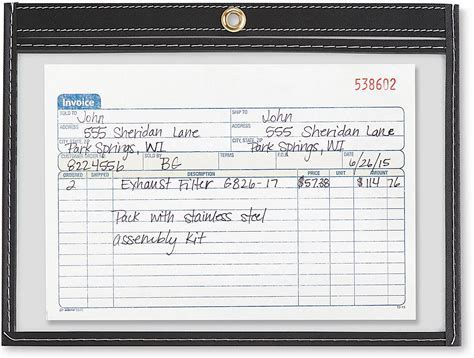 538602
Invoice
SOLD TO John SHIP TO John
ADDRESS 555 Sheridan Lane ADDRESS 555 Sheridan Lane
CITY, STATE, ZIP Park Springs, WI CITY, STATE, ZIP Park Springs, WI
CUSTOMER ORDER NO. 8224556 SOLD BY BG TERMS F.O.B. DATE 6/26/15
ORDERED SHIPPED DESCRIPTION PRICE UNIT AMOUNT
2 Exhaust Filter G826-17 $57.38 $114 76
Pack with stainless steel
assembly kit